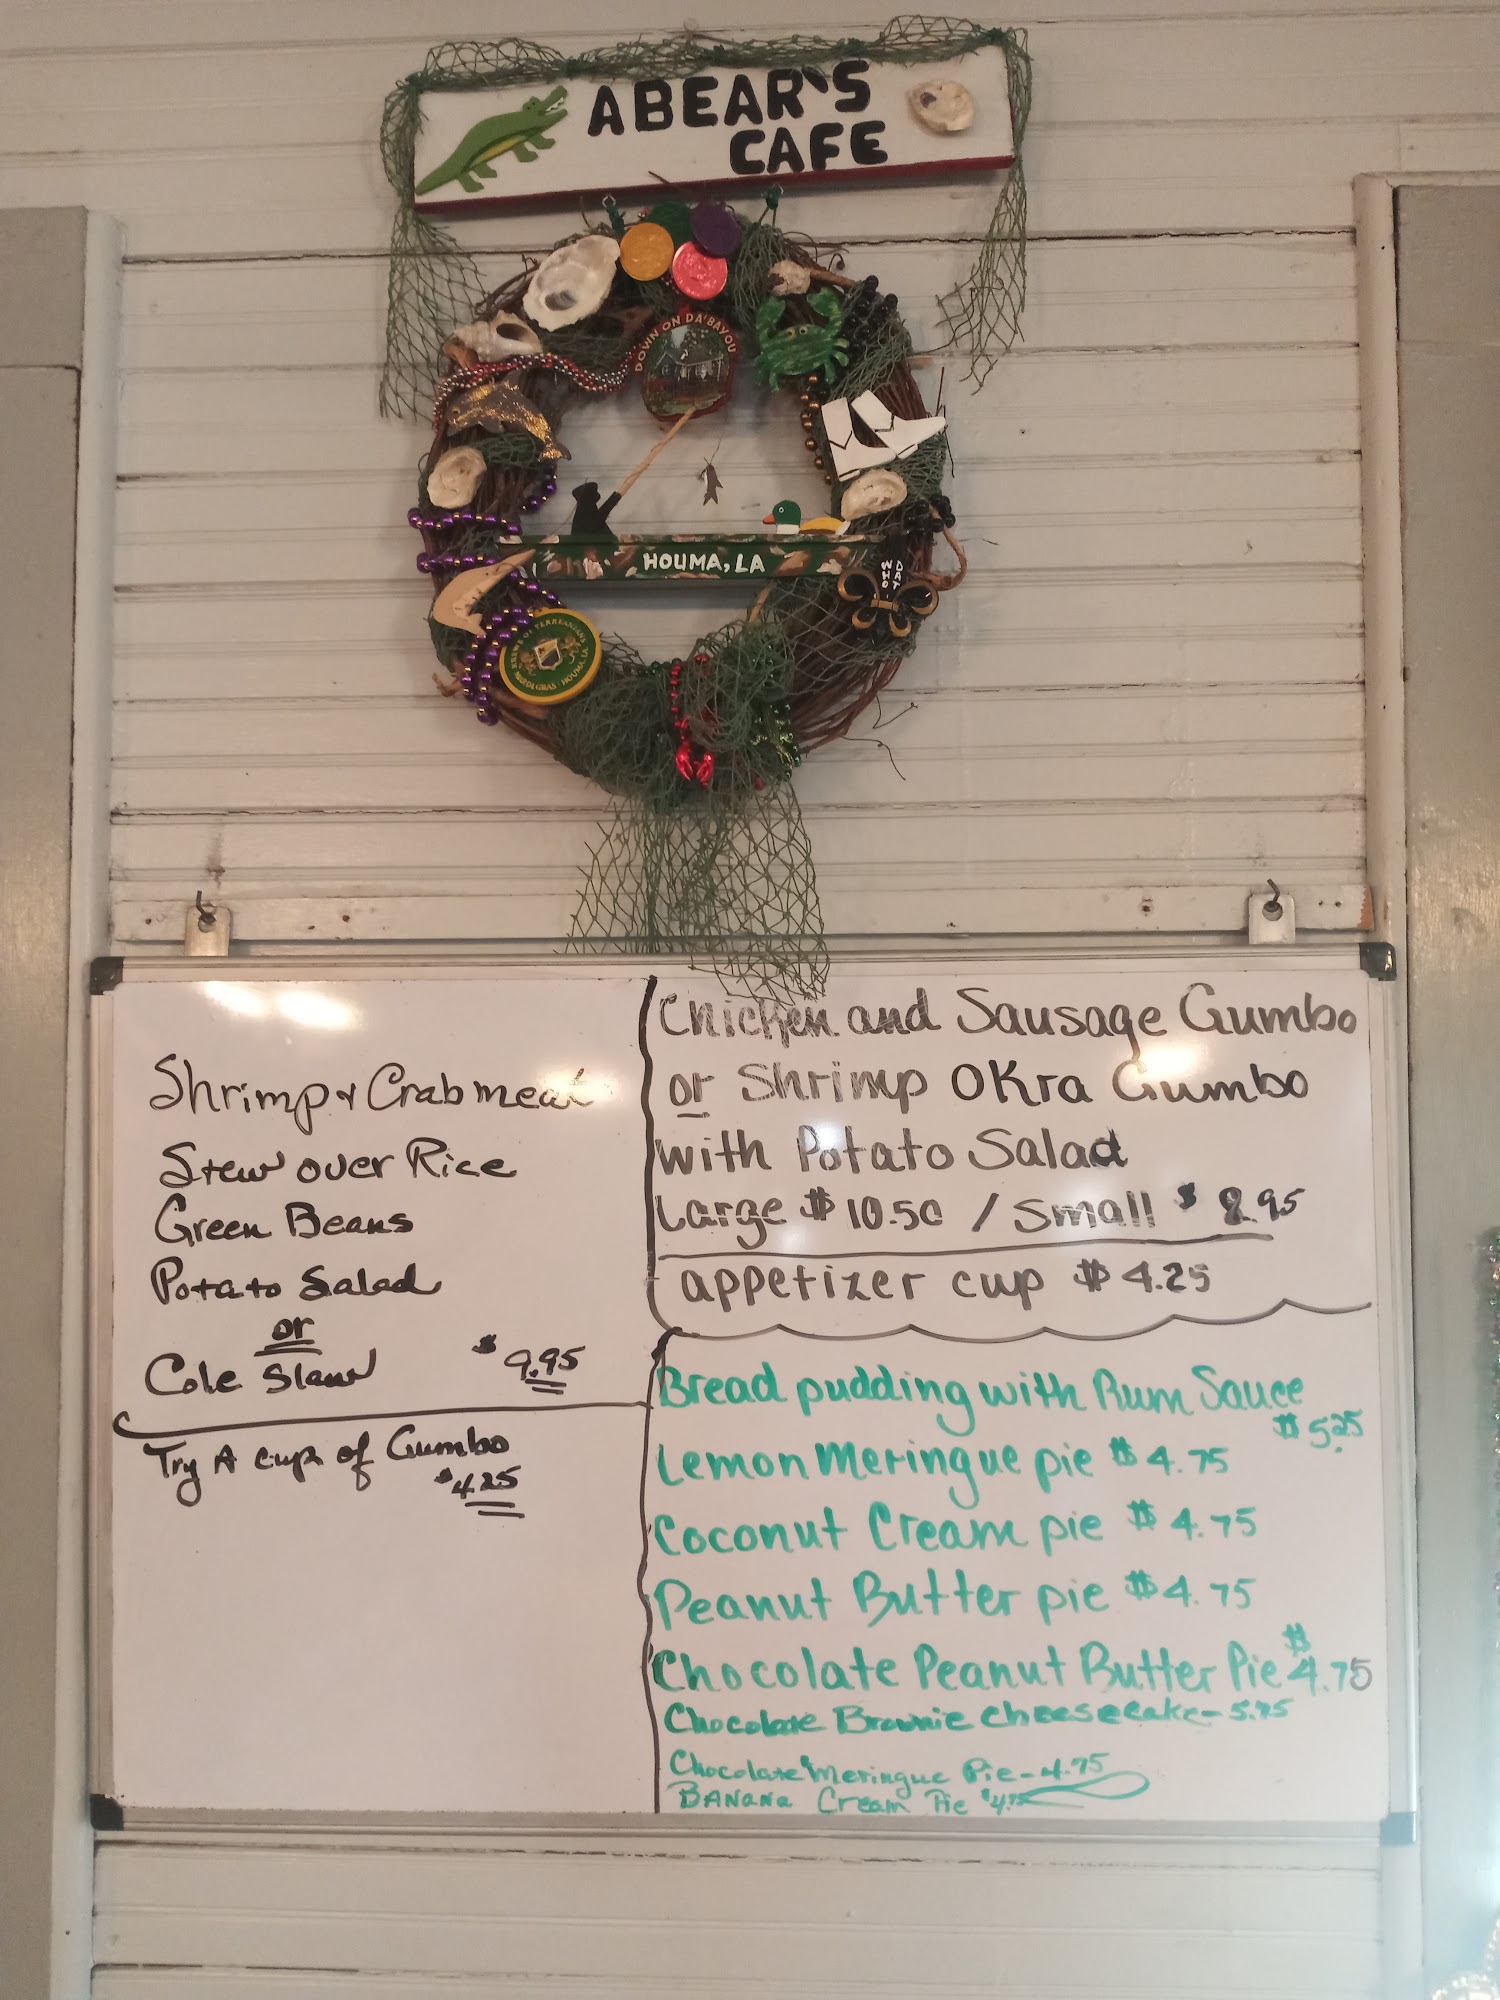 ABEAR'S
CAFE
DOWN ON DA'BAYOU
HOUMA, LA
WHO
DAT
KREWE OF TERREANIANS
MARDI GRAS · HOUMA, LA
Shrimp & Crabmeat
Stew over Rice
Green Beans
Potato Salad
or
Cole Slaw $9.95
Try A cup of Gumbo
$4.25
Chicken and Sausage Gumbo
or Shrimp OKra Gumbo
with Potato Salad
Large $10.50 / Small $8.95
appetizer cup $4.25
Bread pudding with Rum Sauce
$5.25
Lemon Meringue pie $4.75
Coconut Cream pie $4.75
Peanut Butter pie $4.75
Chocolate Peanut Butter Pie $4.75
Chocolate Brownie cheesecake - 5.75
Chocolate Meringue Pie - 4.75
BANANA Cream Pie $4.75